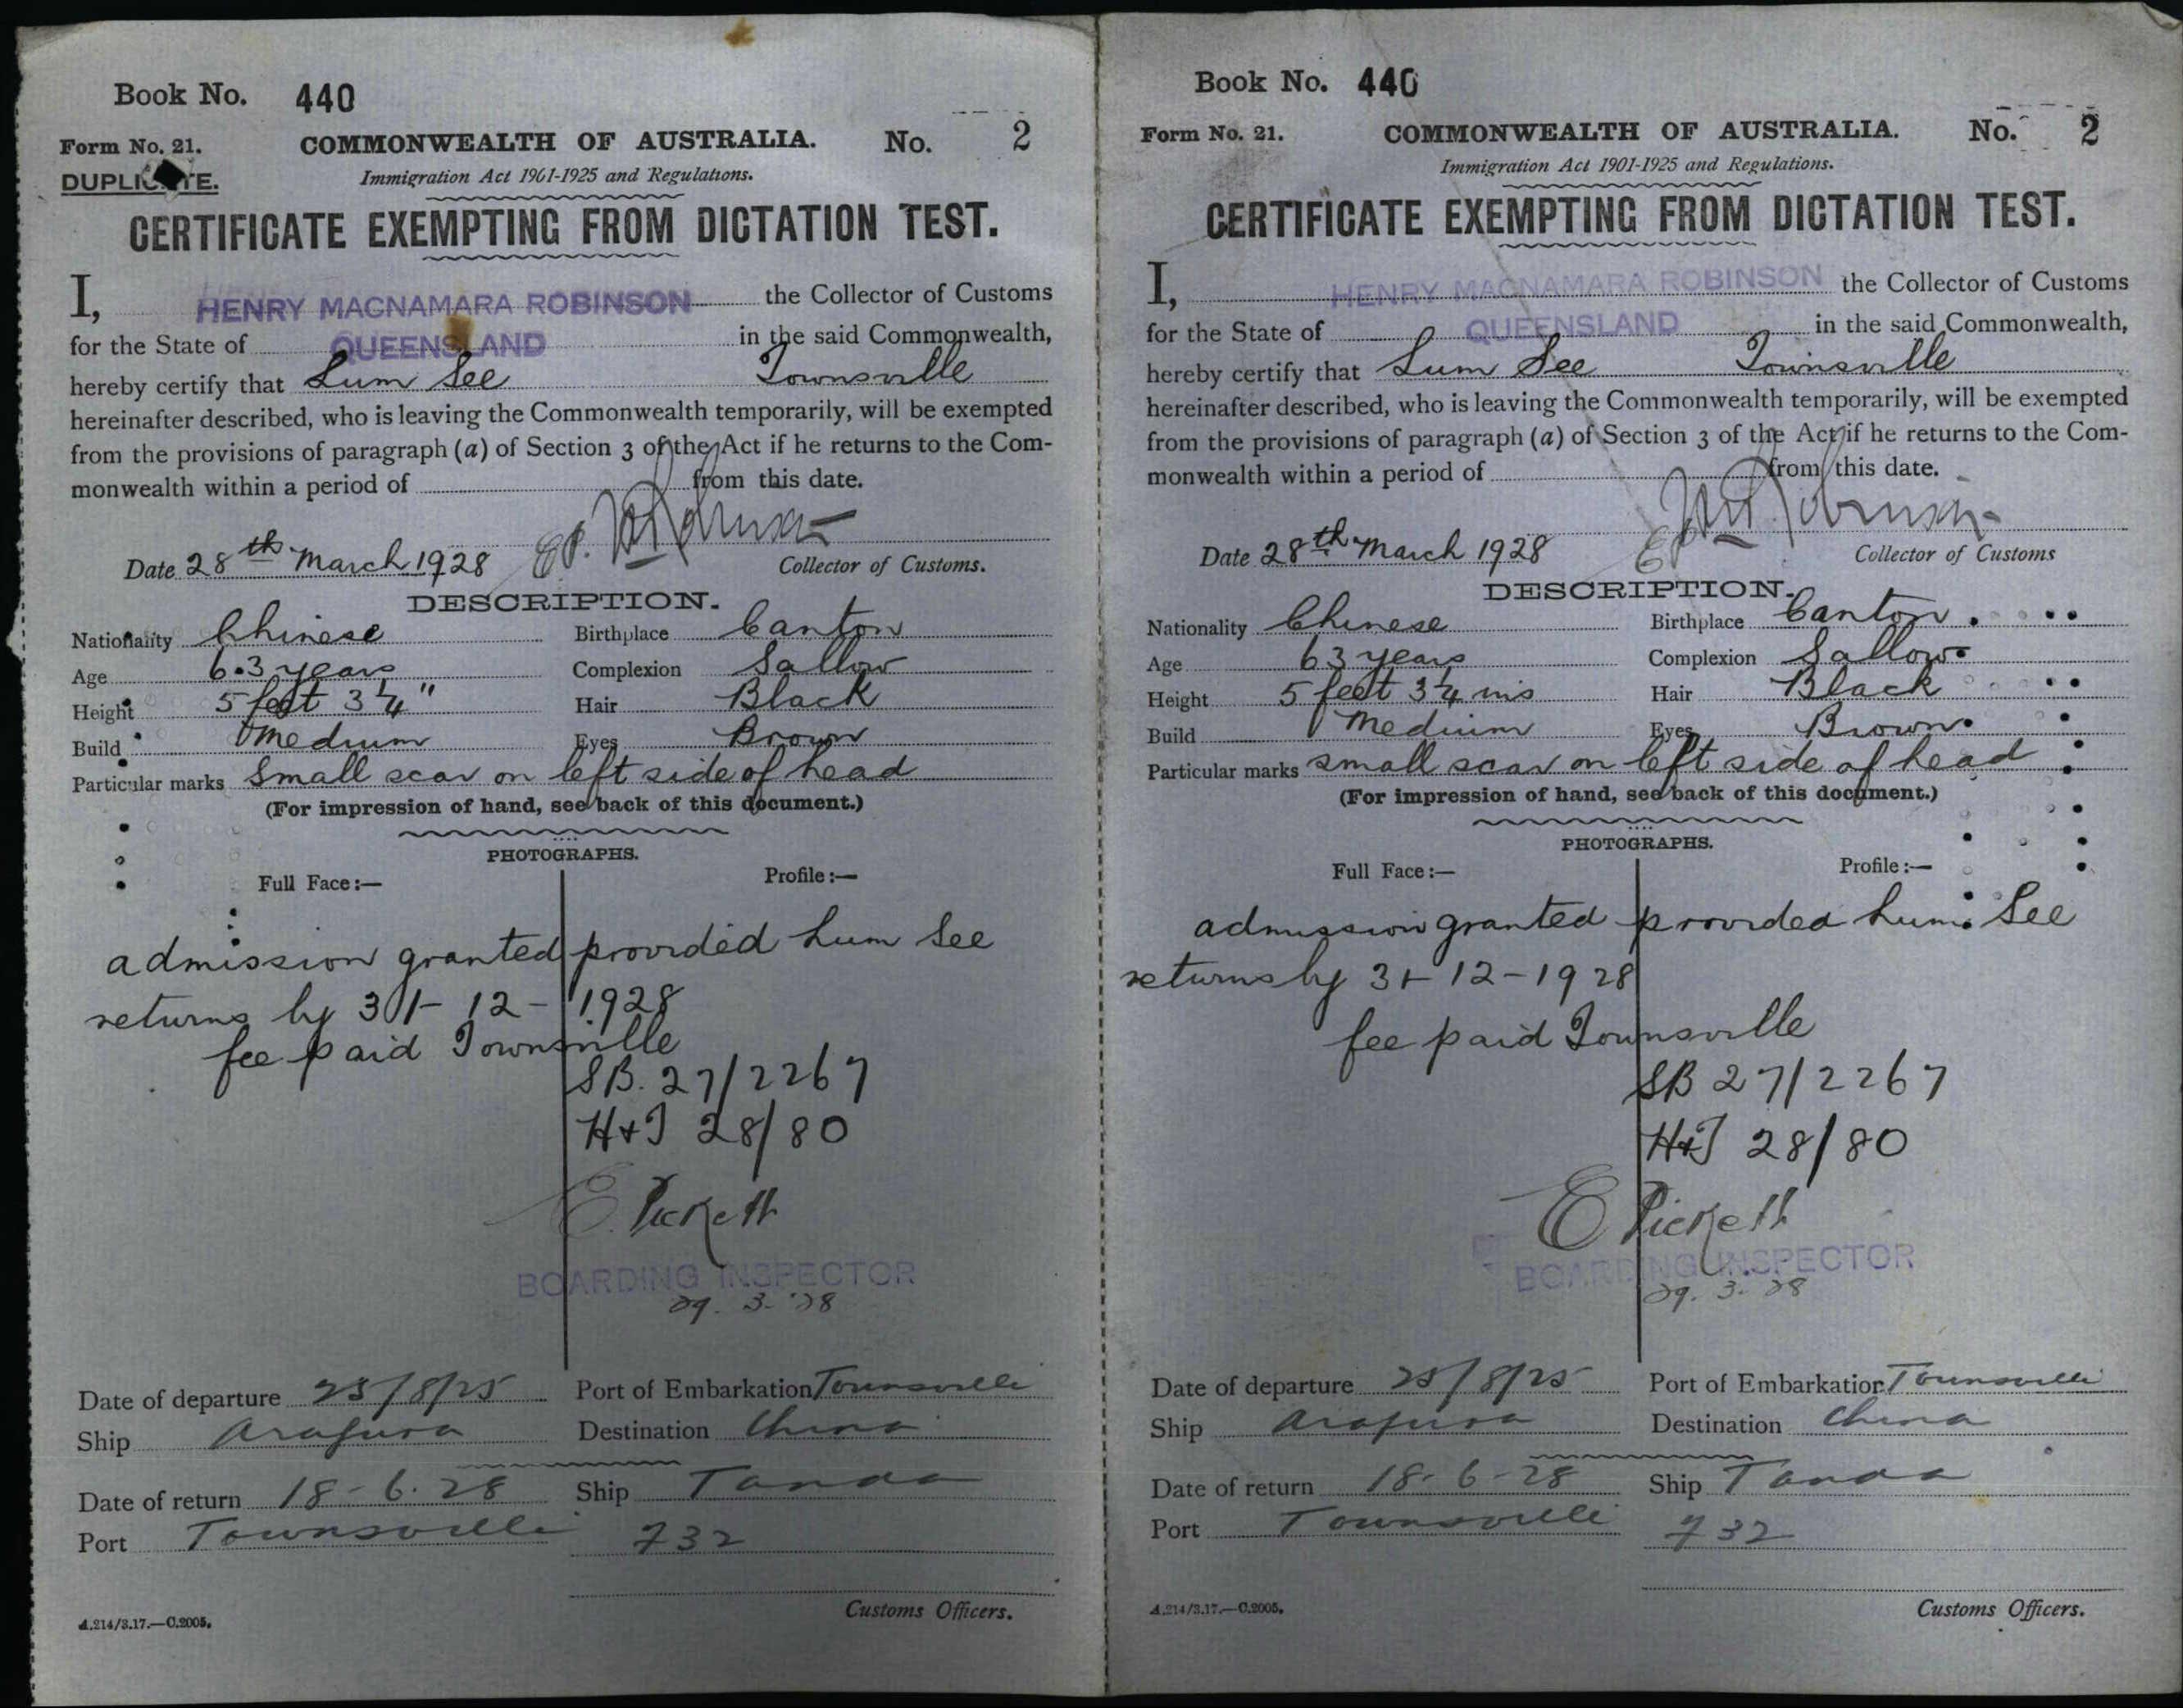 Book No. 440
Form No. 21. COMMONWEALTH OF AUSTRALIA. No. 2
DUPLICATE. Immigration Act 1901-1925 and Regulations.
CERTIFICATE EXEMPTING FROM DICTATION TEST.
I, HENRY MACNAMARA ROBINSON the Collector of Customs
for the State of QUEENSLAND in the said Commonwealth,
hereby certify that Lum See Townsville
hereinafter described, who is leaving the Commonwealth temporarily, will be exempted
from the provisions of paragraph (a) of Section 3 of the Act if he returns to the Com-
monwealth within a period of from this date.
Date 28th March 1928 Collector of Customs.
DESCRIPTION.
Nationality Chinese Birthplace Canton
Age 63 years Complexion Sallow
Height 5 feet 3 1/4 " Hair Black
Build Medium Eyes Brown
Particular marks Small scar on left side of head
(For impression of hand, see back of this document.)
PHOTOGRAPHS.
Full Face:— Profile:—
admission granted provided Lum See
returns by 31-12-1928
fee paid Townsville
SB. 27/2267
H&T 28/80
E. Pickett
BOARDING INSPECTOR
29.3.28
Date of departure 25/8/25 Port of Embarkation Townsville
Ship Arafura Destination China
Date of return 18-6-28 Ship Tanda
Port Townsville 732
Customs Officers.
A.214/3.17.—C.2005.
Book No. 440
Form No. 21. COMMONWEALTH OF AUSTRALIA. No. 2
Immigration Act 1901-1925 and Regulations.
CERTIFICATE EXEMPTING FROM DICTATION TEST.
I, HENRY MACNAMARA ROBINSON the Collector of Customs
for the State of QUEENSLAND in the said Commonwealth,
hereby certify that Lum See Townsville
hereinafter described, who is leaving the Commonwealth temporarily, will be exempted
from the provisions of paragraph (a) of Section 3 of the Act if he returns to the Com-
monwealth within a period of from this date.
Date 28th March 1928 Collector of Customs
DESCRIPTION.
Nationality Chinese Birthplace Canton
Age 63 years Complexion Sallow
Height 5 feet 3 1/4 ins Hair Black
Build Medium Eyes Brown
Particular marks small scar on left side of head
(For impression of hand, see back of this document.)
PHOTOGRAPHS.
Full Face:— Profile:—
admission granted provided Lum See
returns by 31-12-1928
fee paid Townsville
SB 27/2267
H&T 28/80
E Pickett
BOARDING INSPECTOR
29.3.28
Date of departure 25/8/25 Port of Embarkation Townsville
Ship Arafura Destination China
Date of return 18-6-28 Ship Tanda
Port Townsville 732
Customs Officers.
A.214/3.17.—C.2005.